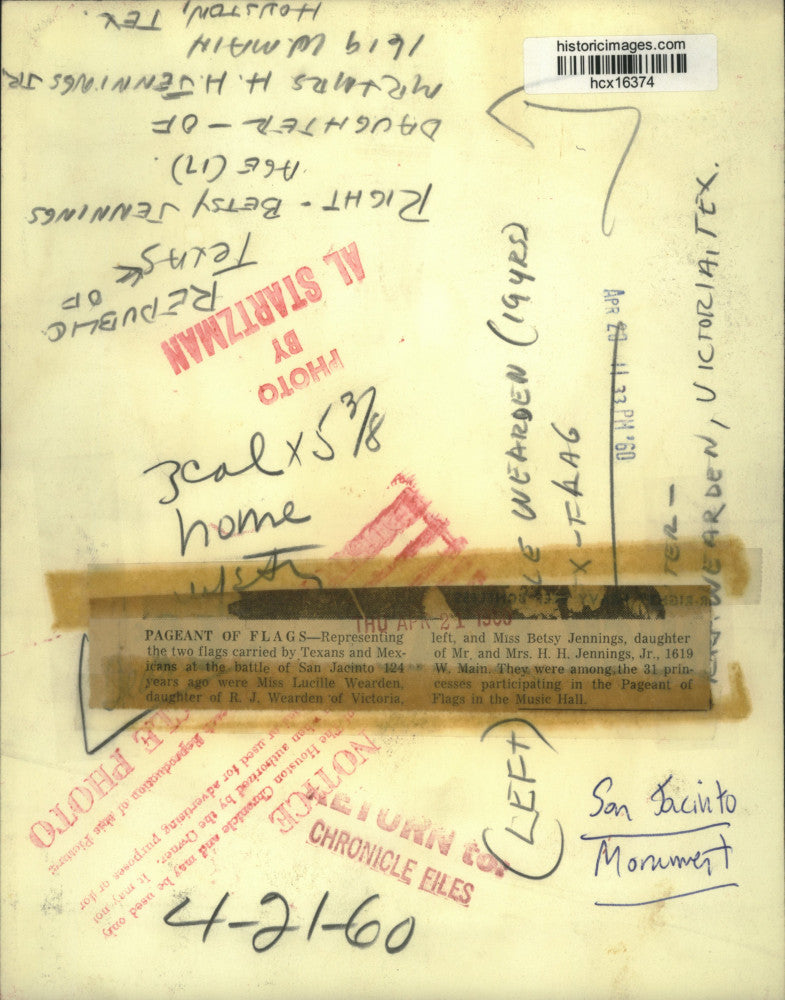 historicimages.com
hcx16374
RIGHT - BETSY JENNINGS
AGE (17).
DAUGHTER - OF
MR & MRS H. H. JENNINGS JR
1619 W. MAIN
HOUSTON, TEX.
REPUBLIC
OF
TEXAS
PHOTO
BY
AL STARTZMAN
3 col x 5 3/8
home
APR 20 11 33 PM '60
(LEFT)
LE WEARDEN (19 YRS)
X-FLAG
TER-
WEARDEN, VICTORIA, TEX.
THU APR 21 1960
PAGEANT OF FLAGS—Representing
the two flags carried by Texans and Mex-
icans at the battle of San Jacinto 124
years ago were Miss Lucille Wearden,
daughter of R. J. Wearden of Victoria,
left, and Miss Betsy Jennings, daughter
of Mr. and Mrs. H. H. Jennings, Jr., 1619
W. Main. They were among the 31 prin-
cesses participating in the Pageant of
Flags in the Music Hall.
LE PHOTO
NOTICE
Reproduction of this Picture
The Houston Chronicle and may be used only
when authorized by the Owner. It may not
or used for advertising purposes or for
RETURN to:
CHRONICLE FILES
4-21-60
San Jacinto
Monument